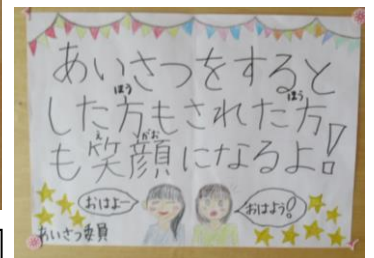 あいさつをすると
した方もされた方
も笑顔になるよ!
おはよー
おはよう!
あいさつ委員